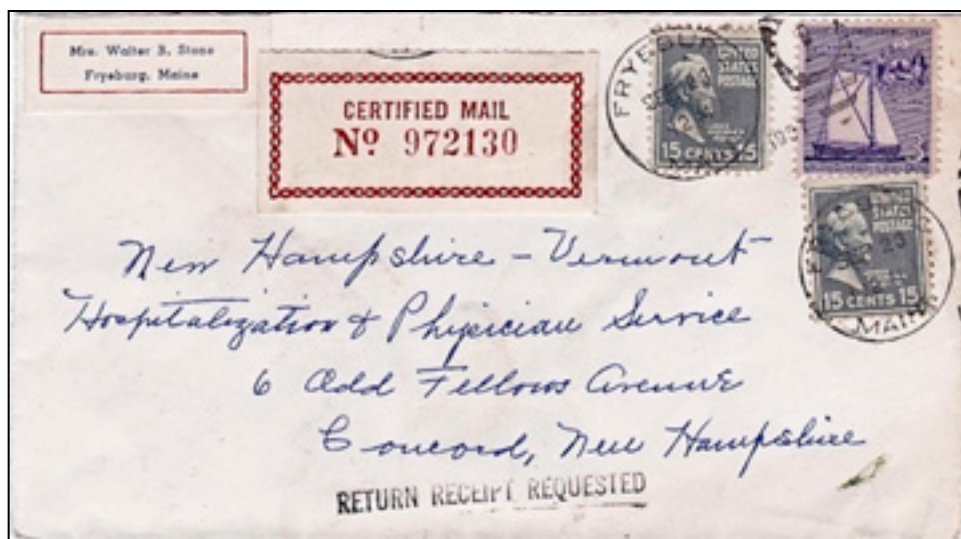 Mrs. Walter B. Stone
Fryeburg, Maine
CERTIFIED MAIL
No 972130
FRYEBURG
UNITED
STATES
POSTAGE
15 CENTS 15
3¢
UNITED
STATES
POSTAGE
23
15 CENTS 15
MAINE
New Hampshire - Vermont
Hospitalization & Physician Service
6 Odd Fellows Avenue
Concord, New Hampshire
RETURN RECEIPT REQUESTED